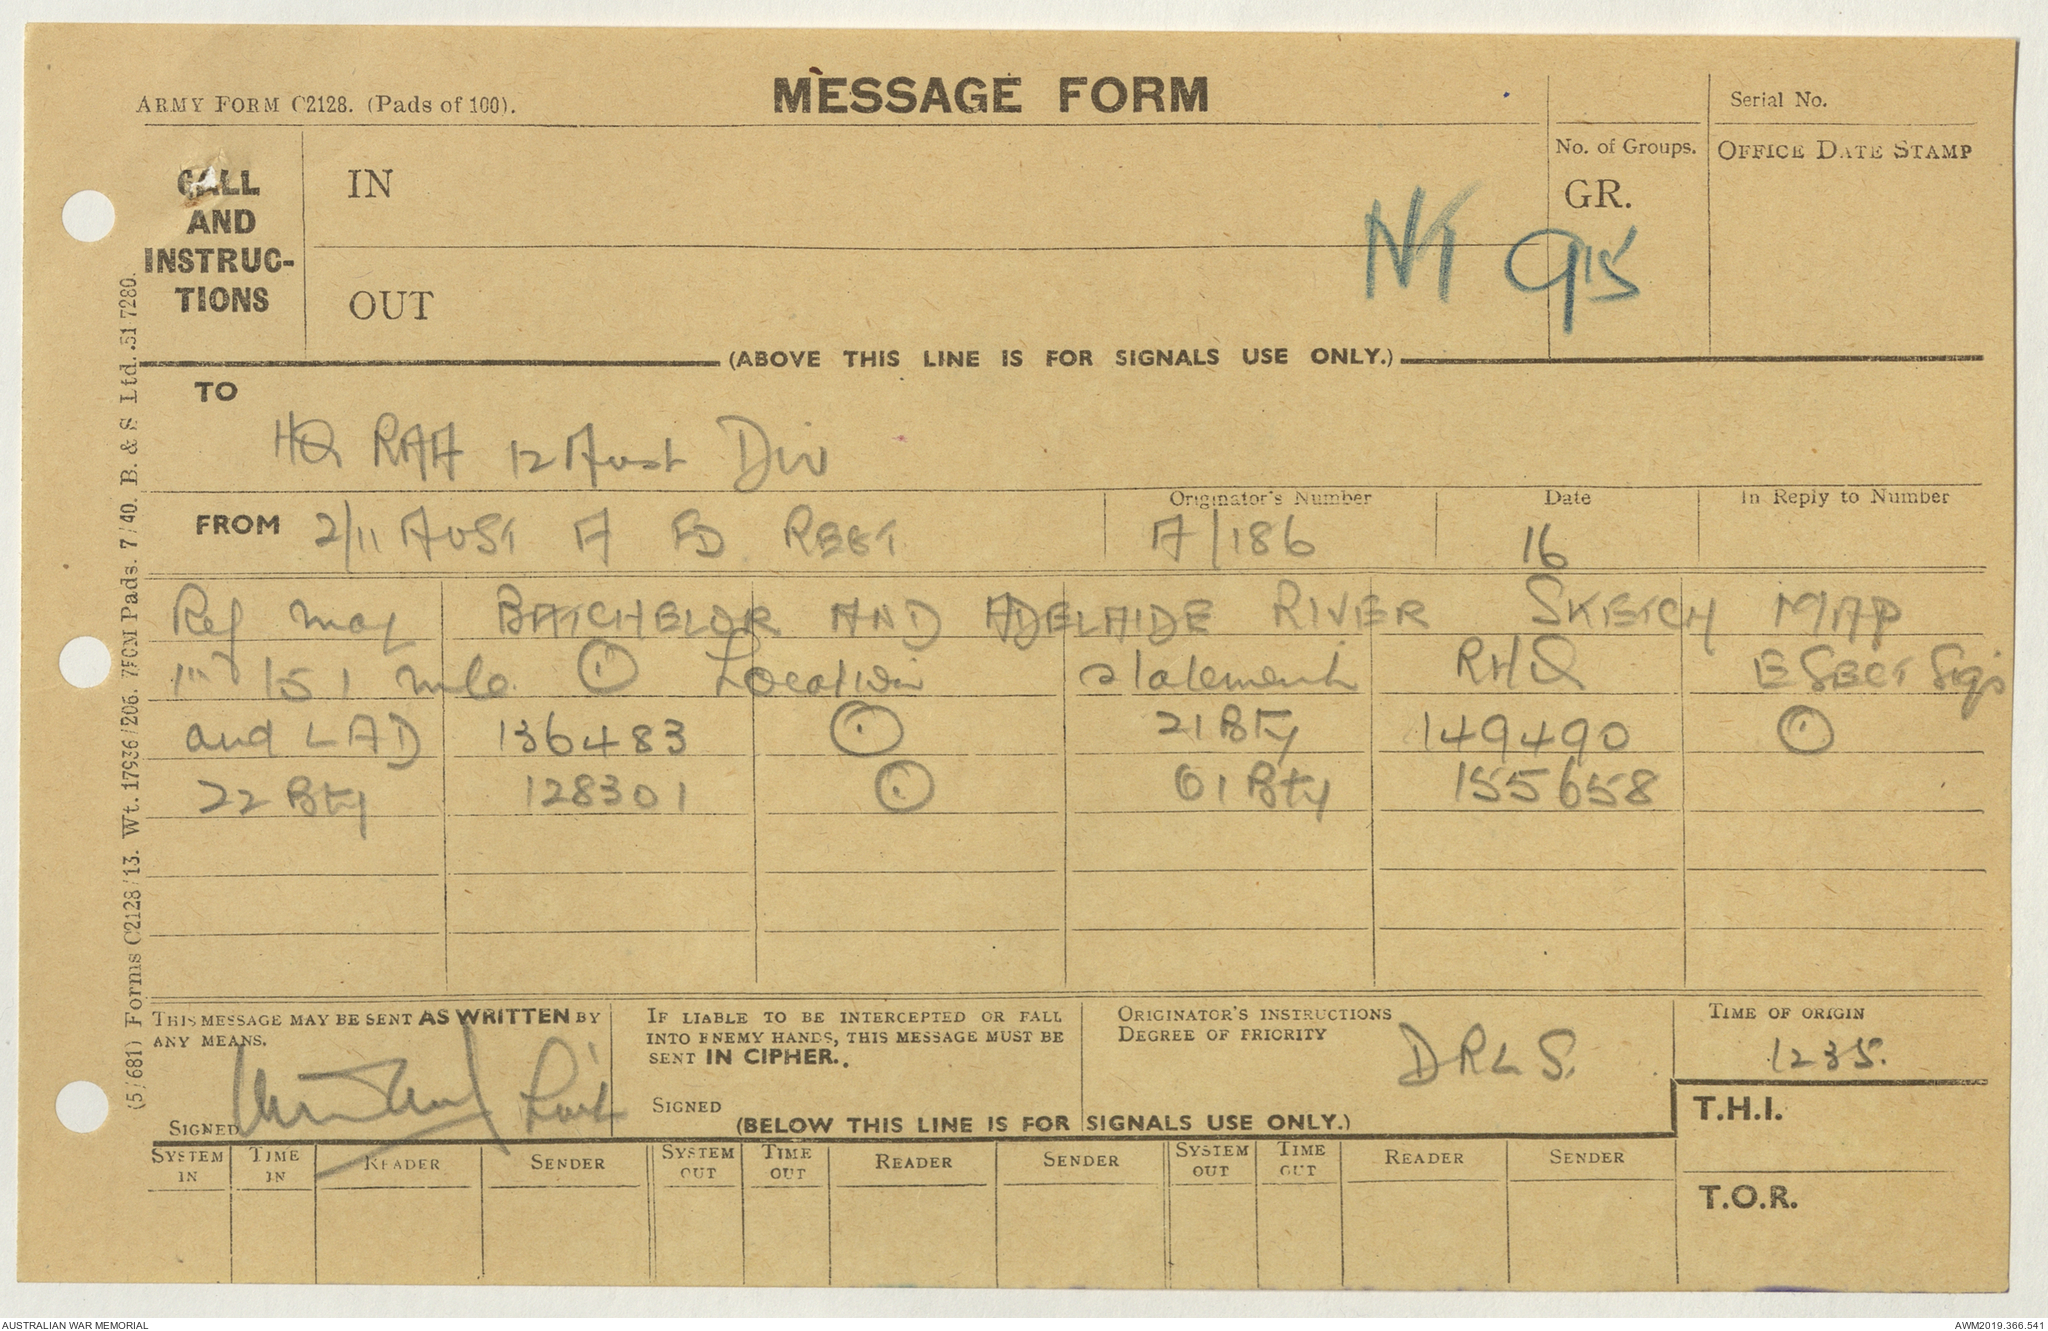 MESSAGE FORM
ARMY FORM C2128. (Pads of 100).
Serial No.
No. of Groups.
OFFICE DATE STAMP
CALL
AND
INSTRUC-
TIONS
IN
GR.
NT 915
OUT
(ABOVE THIS LINE IS FOR SIGNALS USE ONLY.)
TO
HQ RAA 12 Aust Div
Originator's Number
Date
In Reply to Number
FROM 2/11 AUST A FD REGT
A/186
16
Ref map BATCHELOR AND ADELAIDE RIVER SKETCH MAP
1" to 1 mile ⊙ Location statement RHQ E SECT Sigs
and LAD 136483 ⊙ 21 Bty 149490 ⊙
22 Bty 128301 ⊙ 61 Bty 155658
THIS MESSAGE MAY BE SENT AS WRITTEN BY
ANY MEANS.
SIGNED
IF LIABLE TO BE INTERCEPTED OR FALL
INTO ENEMY HANDS, THIS MESSAGE MUST BE
SENT IN CIPHER..
SIGNED
ORIGINATOR'S INSTRUCTIONS
DEGREE OF PRIORITY
DRLS.
TIME OF ORIGIN
1235.
(BELOW THIS LINE IS FOR SIGNALS USE ONLY.)
T.H.I.
SYSTEM IN
TIME IN
READER
SENDER
SYSTEM OUT
TIME OUT
READER
SENDER
SYSTEM OUT
TIME OUT
READER
SENDER
T.O.R.
(5/681) Forms C2128/13. Wt. 17936/206. 7FCM Pads. 7/40. B. & S Ltd. .51 7280.
AUSTRALIAN WAR MEMORIAL
AWM2019.366.541